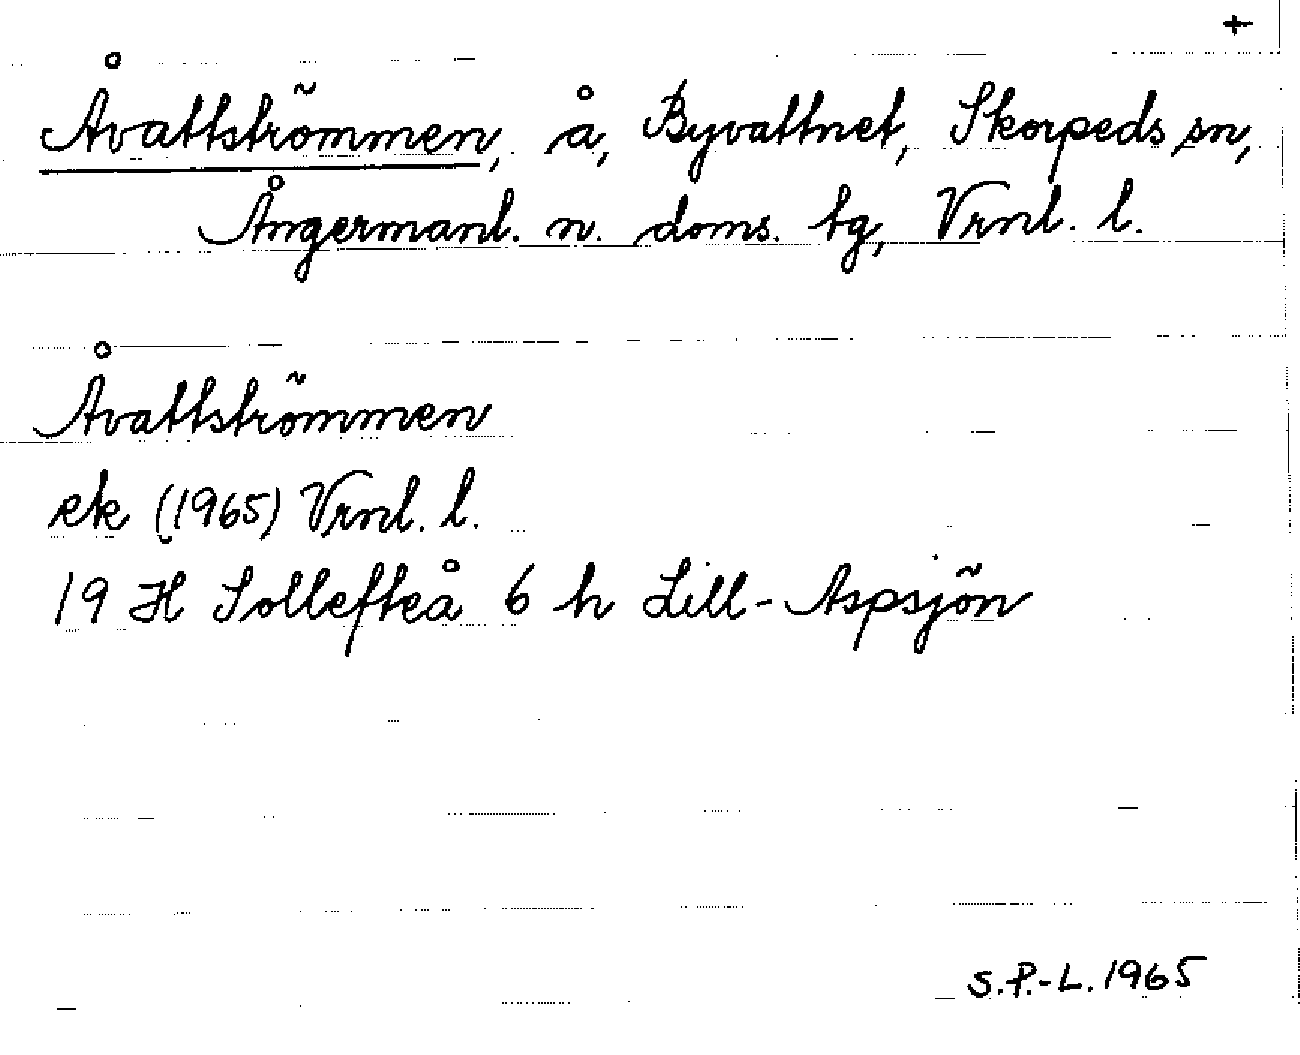 +
Åvattströmmen, å, Byvattnet, Skorpeds sn,
Ångermanl. n. doms. tg, Vrnl. l.
Åvattströmmen
ek (1965) Vrnl. l.
19 H Sollefteå 6 h Lill-Aspsjön
S.P.-L. 1965